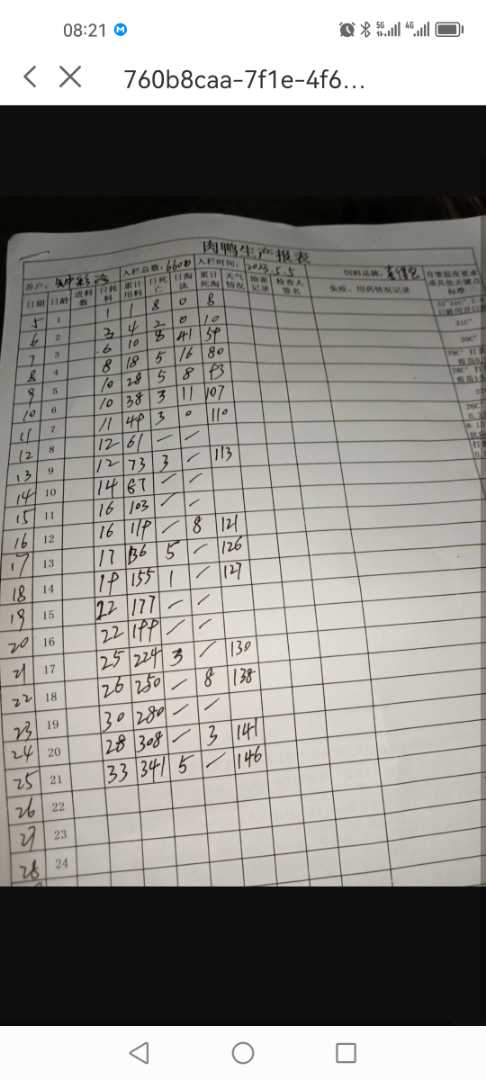 08:21
760b8caa-7f1e-4f6...
肉鸭生产报表
养户: 入栏总数: 6600 入栏时间: 2023.5.5 饲料品牌:
日期 日龄 进料数 日耗料 累计用料 日死亡 日淘汰 累计死淘 天气情况 抽查记录 检查人签名 免疫、用药情况记录
5 1 1 1 8 0 8
6 2 3 4 2 0 10
7 3 6 10 8 41 59
8 4 8 18 5 16 80
9 5 10 28 5 8 93
10 6 10 38 3 11 107
11 7 11 49 3 0 110
12 8 12 61 — —
13 9 12 73 3 — 113
14 10 14 87 — —
15 11 16 103 — —
16 12 16 119 — 8 121
17 13 17 136 5 — 126
18 14 19 155 1 — 127
19 15 22 177 — —
20 16 22 199 — —
21 17 25 224 3 — 130
22 18 26 250 — 8 138
23 19 30 280 — —
24 20 28 308 — 3 141
25 21 33 341 5 — 146
26 22
27 23
28 24